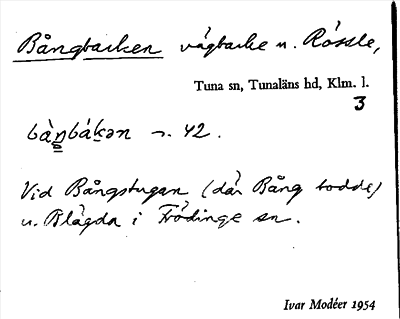 Bångbacken vägbacke n. Rössle,
Tuna sn, Tunaläns hd, Klm. l.
3
bàŋbákən n. 42.
Vid Bångstugan (där Bång bodde)
u. Blägda i Frödinge sn.
Ivar Modéer 1954